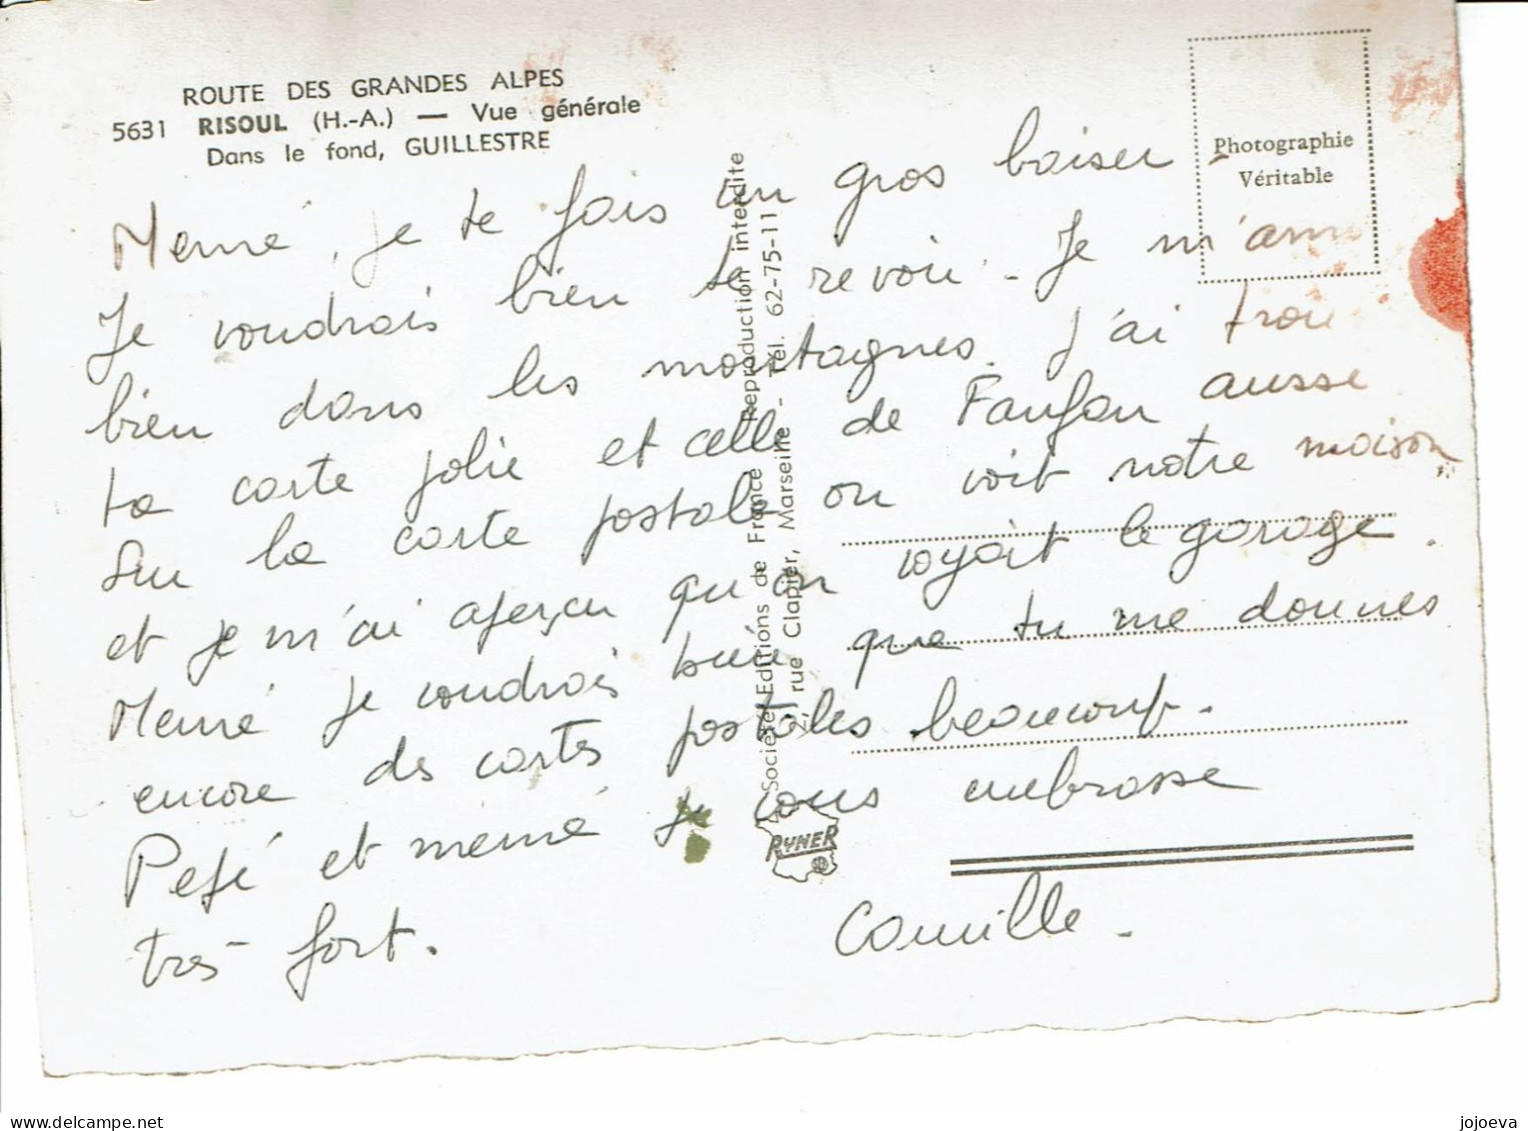 ROUTE DES GRANDES ALPES
5631 RISOUL (H.-A.) — Vue générale
Dans le fond, GUILLESTRE
Photographie
Véritable
Memé, je te fais un gros baiser
Je voudrais bien te revoir. Je m'amu
bien dans les montagnes. J'ai trou
ta carte jolie et celle de Fanfan aussi
Sur la carte postale on voit notre maison
et je m'ai aperçu qu'on voyait le garage.
Memé je voudrais bien que tu me donnes
encore des cartes postales beaucoup.
Pepé et memé je vous embrasse
très fort.
Camille.
Société Editions de France Reproduction interdite
2, rue Clapier, Marseille - Tél. 62-75-11
RYNER
jojoeva